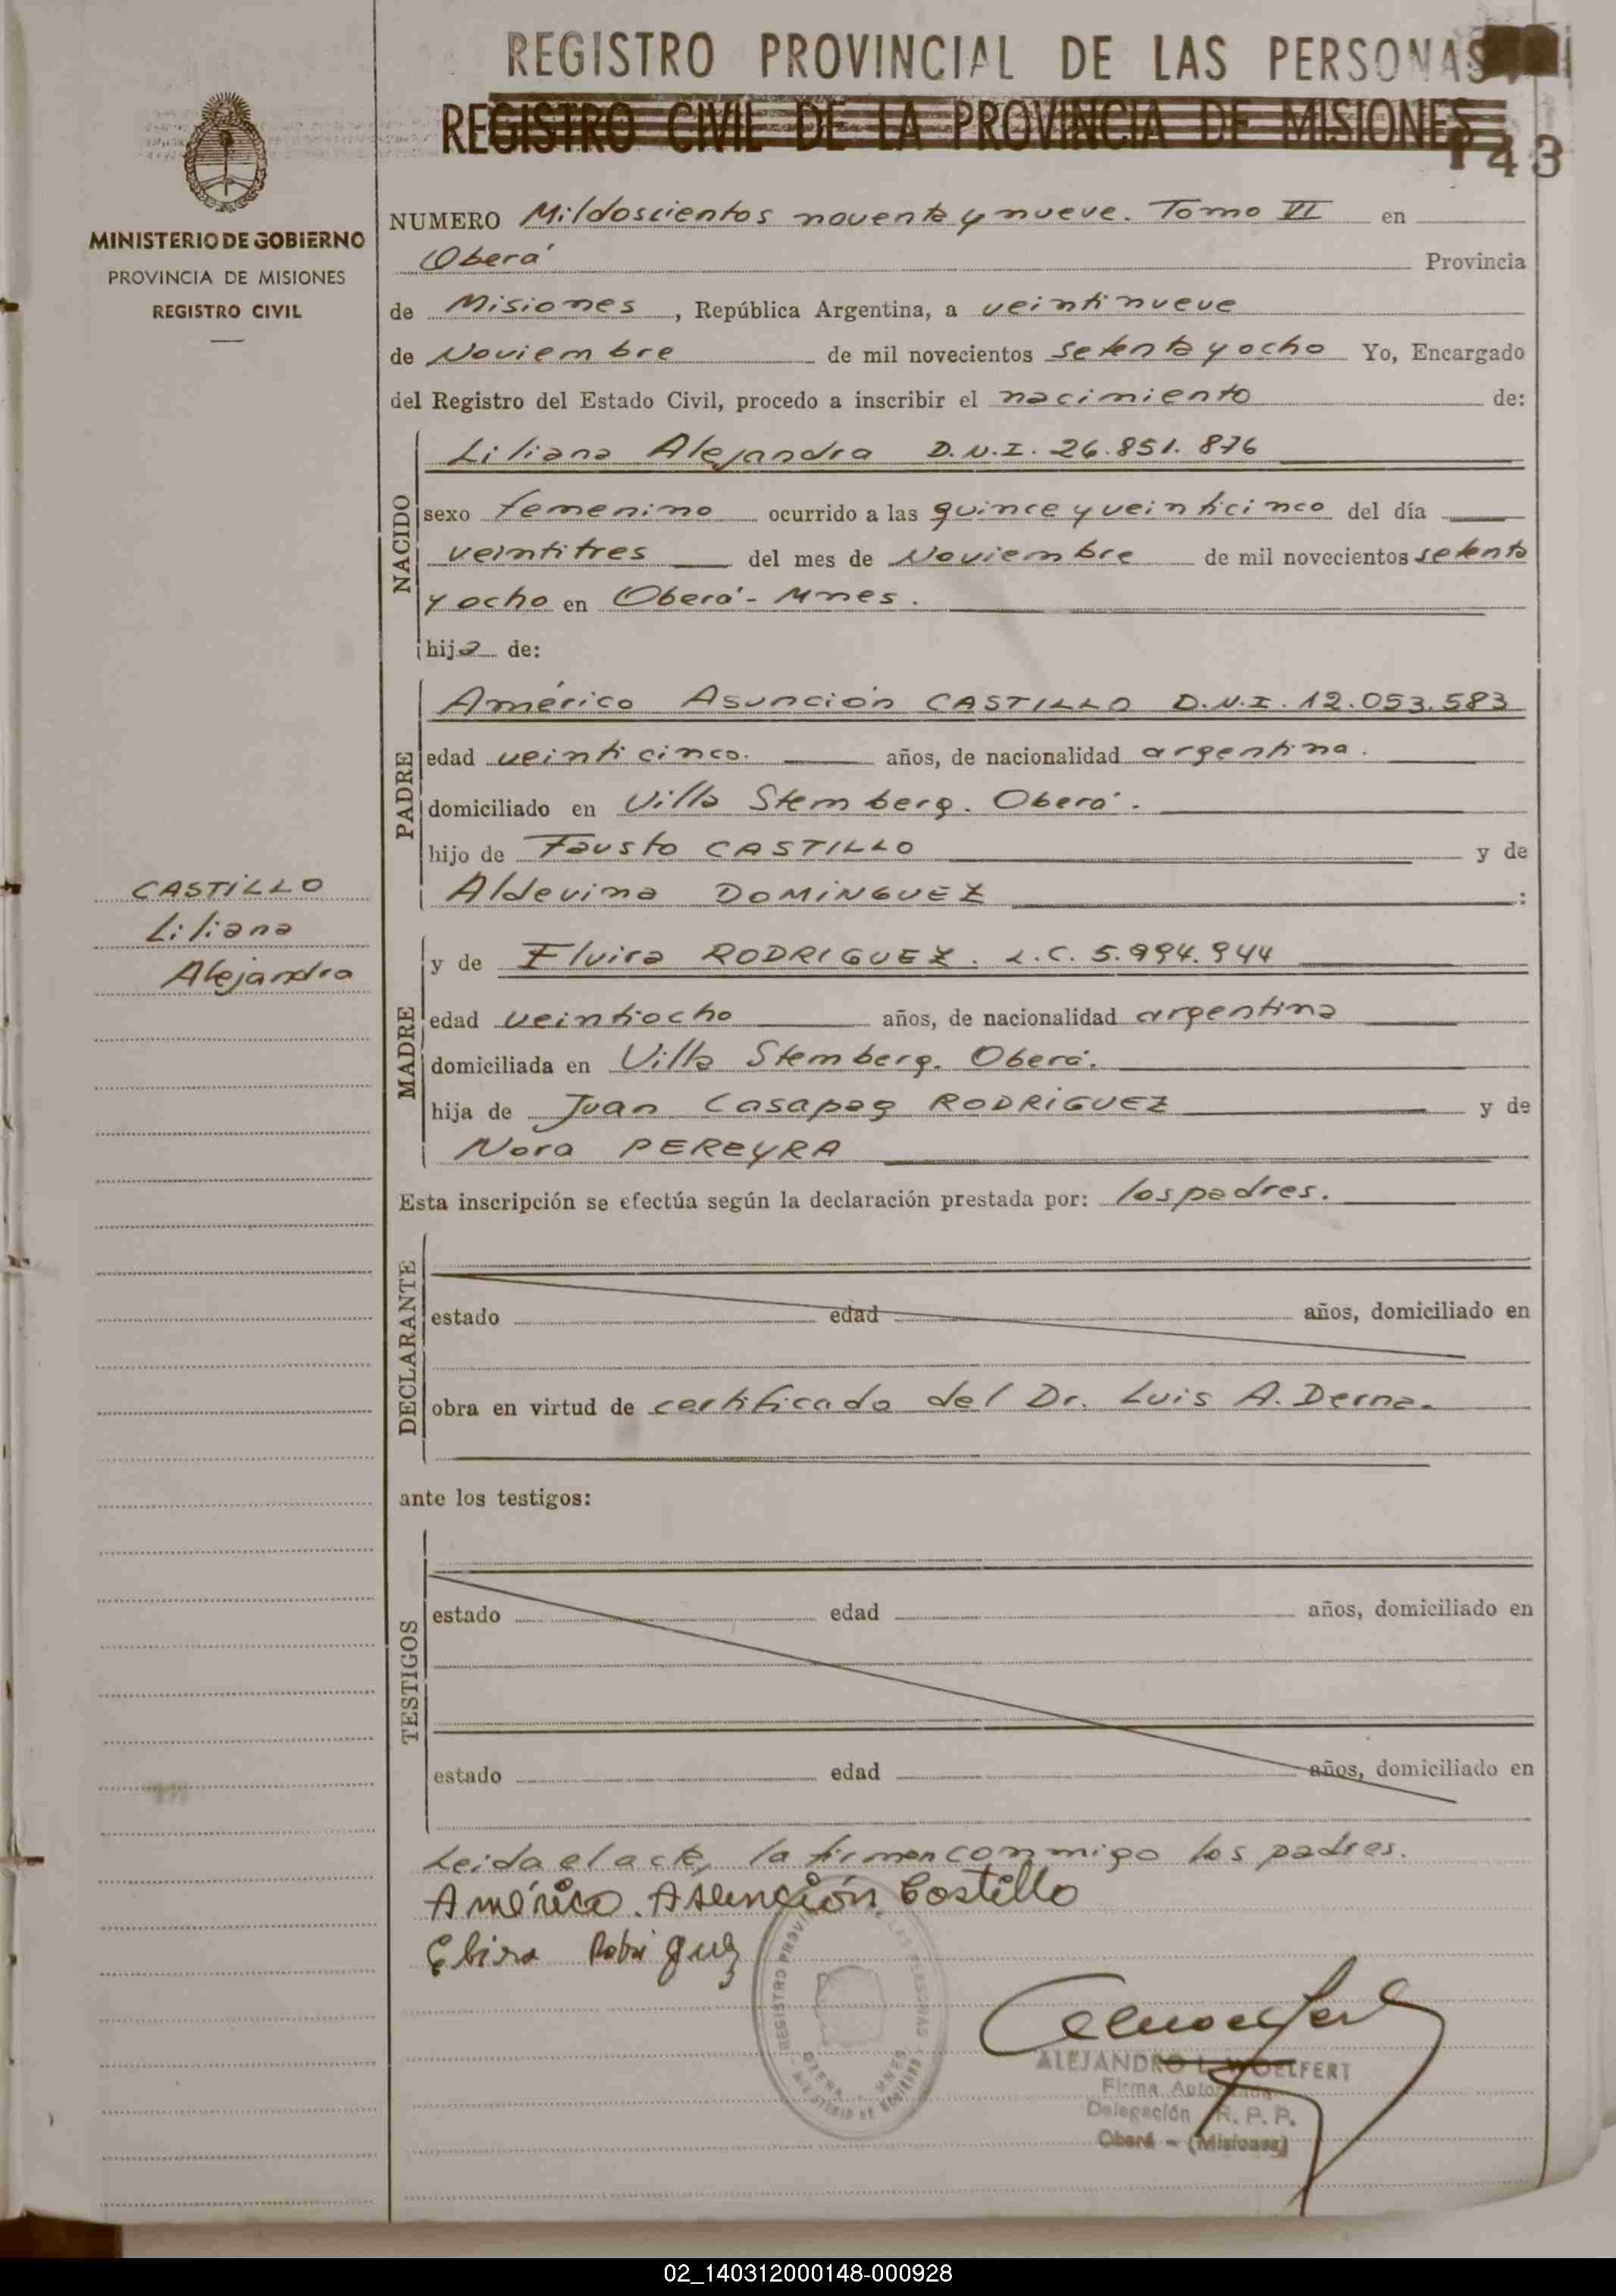 REGISTRO PROVINCIAL DE LAS PERSONAS
REGISTRO CIVIL DE LA PROVINCIA DE MISIONES
143
MINISTERIO DE GOBIERNO
PROVINCIA DE MISIONES
REGISTRO CIVIL
NUMERO Mildoscientos noventa y nueve. Tomo VI en
Oberá Provincia
de Misiones, República Argentina, a veintinueve
de Noviembre de mil novecientos setenta y ocho Yo, Encargado
del Registro del Estado Civil, procedo a inscribir el nacimiento de:
NACIDO
Liliana Alejandra D.N.I. 26.851.876
sexo femenino ocurrido a las quince y veinticinco del día
veintitres del mes de Noviembre de mil novecientos setenta
y ocho en Oberá - Mnes.
hija de:
PADRE
Américo Asunción CASTILLO D.N.I. 12.053.583
edad veinticinco. años, de nacionalidad argentina.
domiciliado en Villa Stemberg. Oberá.
hijo de Fausto CASTILLO y de
Aldevina DOMINGUEZ :
CASTILLO
Liliana
Alejandra
MADRE
y de Elvira RODRIGUEZ. L.C. 5.994.944
edad veintiocho años, de nacionalidad argentina
domiciliada en Villa Stemberg. Oberá.
hija de Juan Casapag RODRIGUEZ y de
Nora PEREYRA
Esta inscripción se efectúa según la declaración prestada por: los padres.
DECLARANTE
estado edad años, domiciliado en
obra en virtud de certificado del Dr. Luis A. Derna.
ante los testigos:
TESTIGOS
estado edad años, domiciliado en
estado edad años, domiciliado en
Leida el acta, la firman conmigo los padres.
Américo. Asunción Castillo
Elvira Rodriguez
REGISTRO PROVINCIAL DE LAS PERSONAS
OBERA - MNES
ALEJANDRO L. WOELFERT
Firma Autorizada
Delegación R. P. P.
Oberá - (Misiones)
02_140312000148-000928